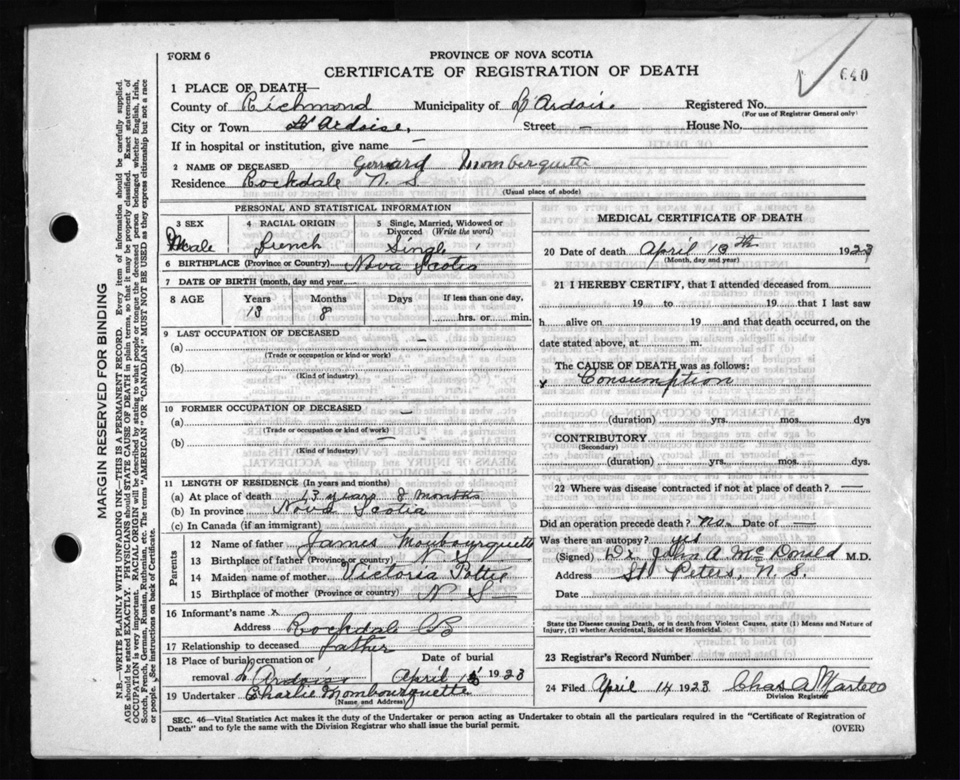 FORM 6
PROVINCE OF NOVA SCOTIA
CERTIFICATE OF REGISTRATION OF DEATH
640
1 PLACE OF DEATH—
County of Richmond Municipality of L'Ardoise Registered No.
(For use of Registrar General only)
City or Town L'Ardoise, Street — House No. —
If in hospital or institution, give name —
2 NAME OF DECEASED Gerrard Mombourquette
Residence Rockdale N. S.
(Usual place of abode)
PERSONAL AND STATISTICAL INFORMATION
3 SEX Male
4 RACIAL ORIGIN French
5 Single, Married, Widowed or Divorced (Write the word) Single
6 BIRTHPLACE (Province or Country) Nova Scotia
7 DATE OF BIRTH (month, day and year)
8 AGE Years 13 Months 8 Days If less than one day, hrs. or min.
9 LAST OCCUPATION OF DECEASED
(a) —
(Trade or occupation or kind or work)
(b)
(Kind of industry)
10 FORMER OCCUPATION OF DECEASED —
(a)
(Trade or occupation or kind of work)
(b) —
(Kind of industry)
11 LENGTH OF RESIDENCE (In years and months)
(a) At place of death 13 years 8 months
(b) In province Nova Scotia
(c) In Canada (if an immigrant)
Parents
12 Name of father James Moubourquette
13 Birthplace of father (Province or country) N. S.
14 Maiden name of mother Victoria Pottie
15 Birthplace of mother (Province or country) N S
16 Informant's name x
Address Rockdale CB
17 Relationship to deceased father
18 Place of burial, cremation or removal L'Ardoise Date of burial April 15 1923
19 Undertaker Charlie Mombourquette
(Name and Address)
MEDICAL CERTIFICATE OF DEATH
20 Date of death April 13th 1923
(Month, day and year)
21 I HEREBY CERTIFY, that I attended deceased from
19 to 19 that I last saw
h alive on 19 and that death occurred, on
date stated above, at m.
The CAUSE OF DEATH was as follows:
x Consumption
(duration) yrs. mos. dys
CONTRIBUTORY
(Secondary)
(duration) yrs. mos. dys.
22 Where was disease contracted if not at place of death? —
Did an operation precede death? no. Date of —
Was there an autopsy? yes
(Signed) Dr. John A McDonald M.D.
Address St. Peters, N. S.
Date
State the Disease causing Death, or in death from Violent Causes, state (1) Means and Nature of Injury, (2) whether Accidental, Suicidal or Homicidal.
23 Registrar's Record Number
24 Filed April 14 1923 Chas A Martell
Division Registrar
SEC. 46—Vital Statistics Act makes it the duty of the Undertaker or person acting as Undertaker to obtain all the particulars required in the "Certificate of Registration of
Death" and to fyle the same with the Division Registrar who shall issue the burial permit.
(OVER)
MARGIN RESERVED FOR BINDING
N.B.—WRITE PLAINLY WITH UNFADING INK—THIS IS A PERMANENT RECORD. Every item of information should be carefully supplied.
AGE should be stated EXACTLY. PHYSICIANS should STATE CAUSE OF DEATH in plain terms, so that it may be properly classified. Exact statement of
OCCUPATION is very important. RACIAL ORIGIN will be described by stating to what people or tongue the deceased person belonged whether English, Irish,
Scotch, French, German, Russian, Ruthenian, etc. The terms "AMERICAN" OR "CANADIAN" MUST NOT BE USED as they express citizenship but not a race
or people. See instructions on back of Certificate.